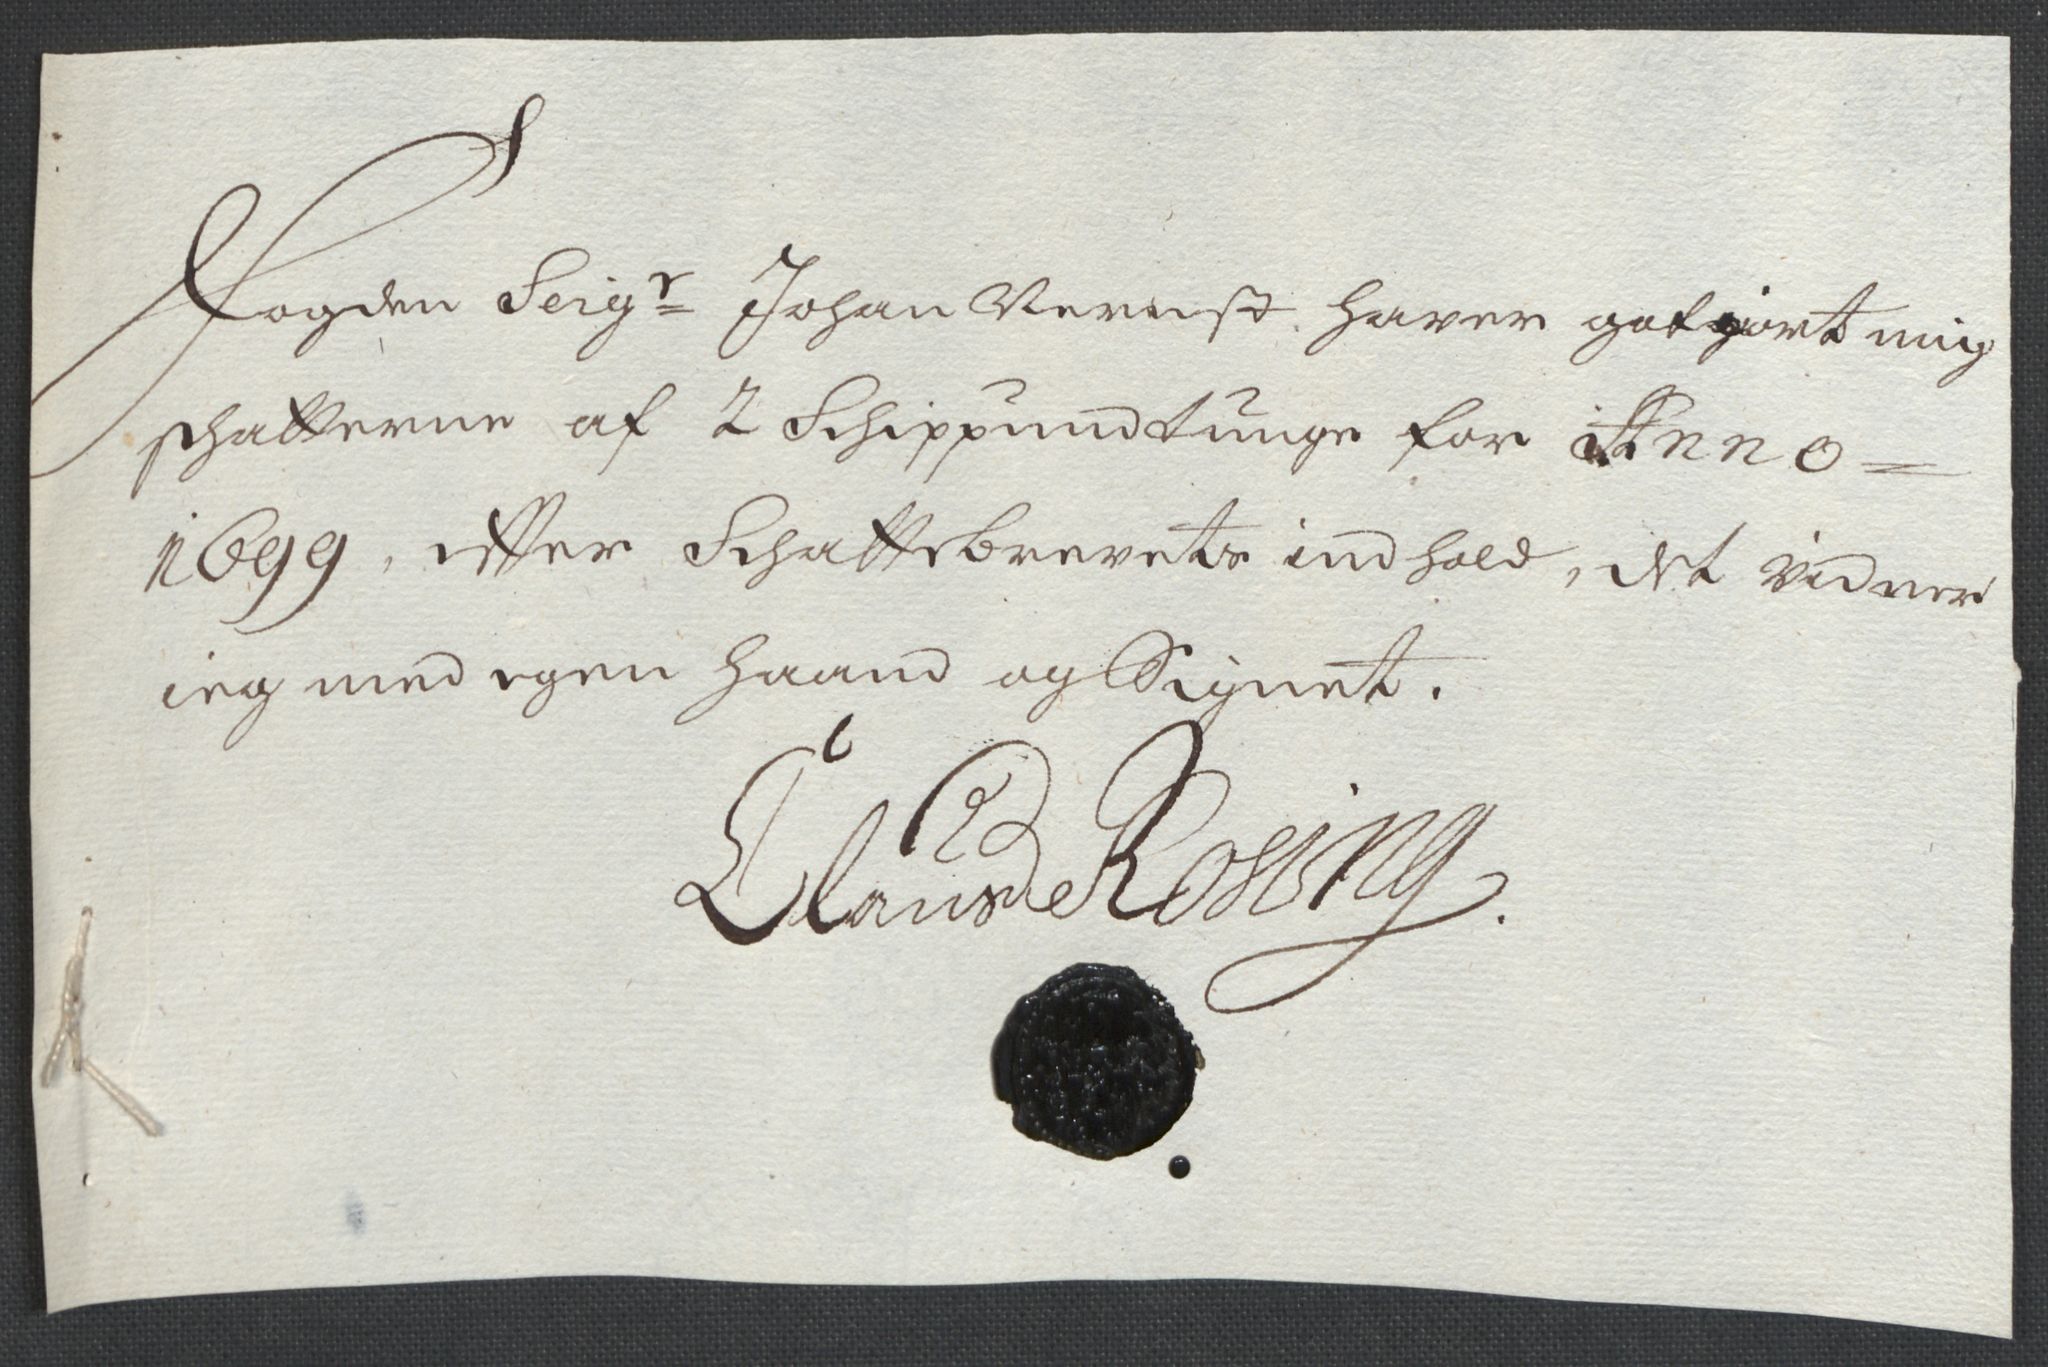 Fogden Seigr Johan Vernst. haver gotgiort mig
schatterne af 2 Schippundtunge for Anno
1699, effter Schattebrevets indhold, det vidner
ieg med egen haand og Signet.
Claus Rossing.